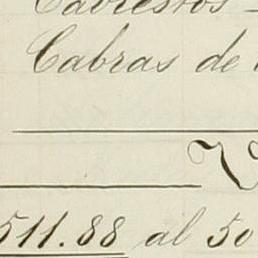 Cabrestos
Cabras de
511.88 al 50